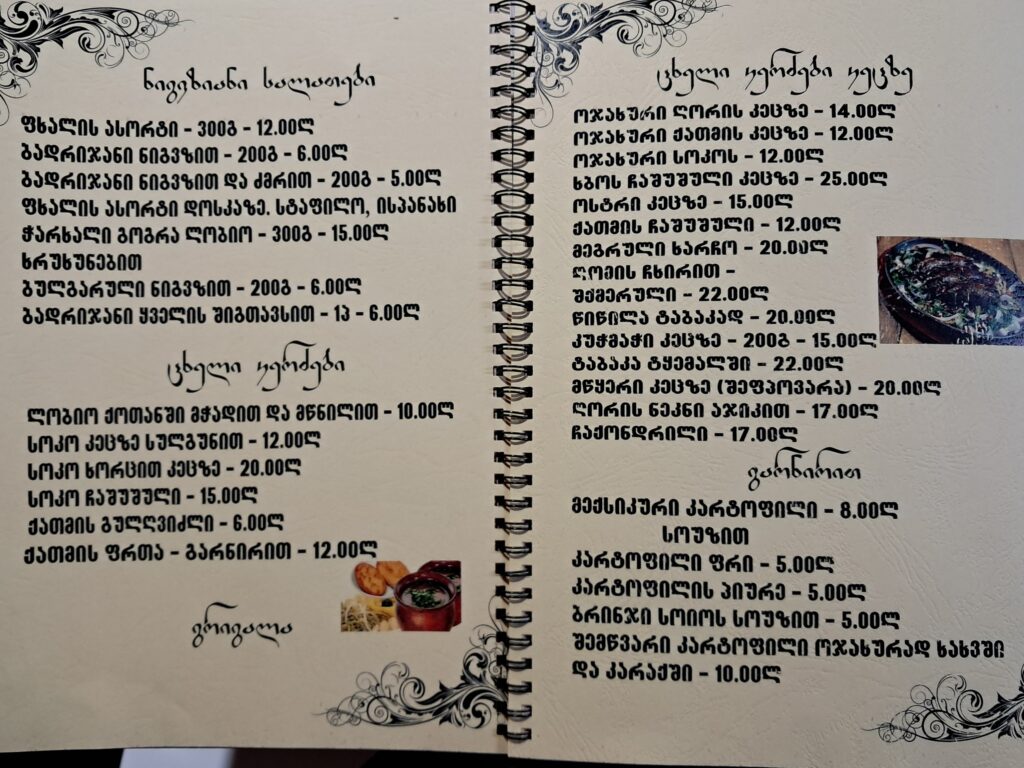 ნიგვზიანი სალათები
ფხალის ასორტი - 300გ - 12.00ლ
ბადრიჯანი ნიგვზით - 200გ - 6.00ლ
ბადრიჯანი ნიგვზით და ძმრით - 200გ - 5.00ლ
ფხალის ასორტი დოსკაზე. სტაფილო, ისპანახი
ჭარხალი გოგრა ლობიო - 300გ - 15.00ლ
ხრუხუნებით
ბულგარული ნიგვზით - 200გ - 6.00ლ
ბადრიჯანი ყველის შიგთავსით - 1პ - 6.00ლ
ცხელი კერძები
ლობიო ქოთანში მჭადით და მწნილით - 10.00ლ
სოკო კეცზე სულგუნით - 12.00ლ
სოკო ხორცით კეცზე - 20.00ლ
სოკო ჩაშუშული - 15.00ლ
ქათმის გულღვიძლი - 6.00ლ
ქათმის ფრთა - გარნირით - 12.00ლ
გრიგალა
ცხელი კერძები კეცზე
ოჯახური ღორის კეცზე - 14.00ლ
ოჯახური ქათმის კეცზე - 12.00ლ
ოჯახური სოკოს - 12.00ლ
ხბოს ჩაშუშული კეცზე - 25.00ლ
ოსტრი კეცზე - 15.00ლ
ქათმის ჩაშუშული - 12.00ლ
მეგრული ხარჩო - 20.00ლ
ღომის ჩხირით -
შქმერული - 22.00ლ
წიწილა ტაბაკად - 20.00ლ
კუჭმაჭი კეცზე - 200გ - 15.00ლ
ტაბაკა ტყემალში - 22.00ლ
მწყერი კეცზე (შეფპოვარა) - 20.00ლ
ღორის ნეკნი აჯიკით - 17.00ლ
ჩაქონდრილი - 17.00ლ
გარნირით
მექსიკური კარტოფილი - 8.00ლ
სოუზით
კარტოფილი ფრი - 5.00ლ
კარტოფილის პიურე - 5.00ლ
ბრინჯი სოიოს სოუზით - 5.00ლ
შემწვარი კარტოფილი ოჯახურად ხახვში
და კარაქში - 10.00ლ